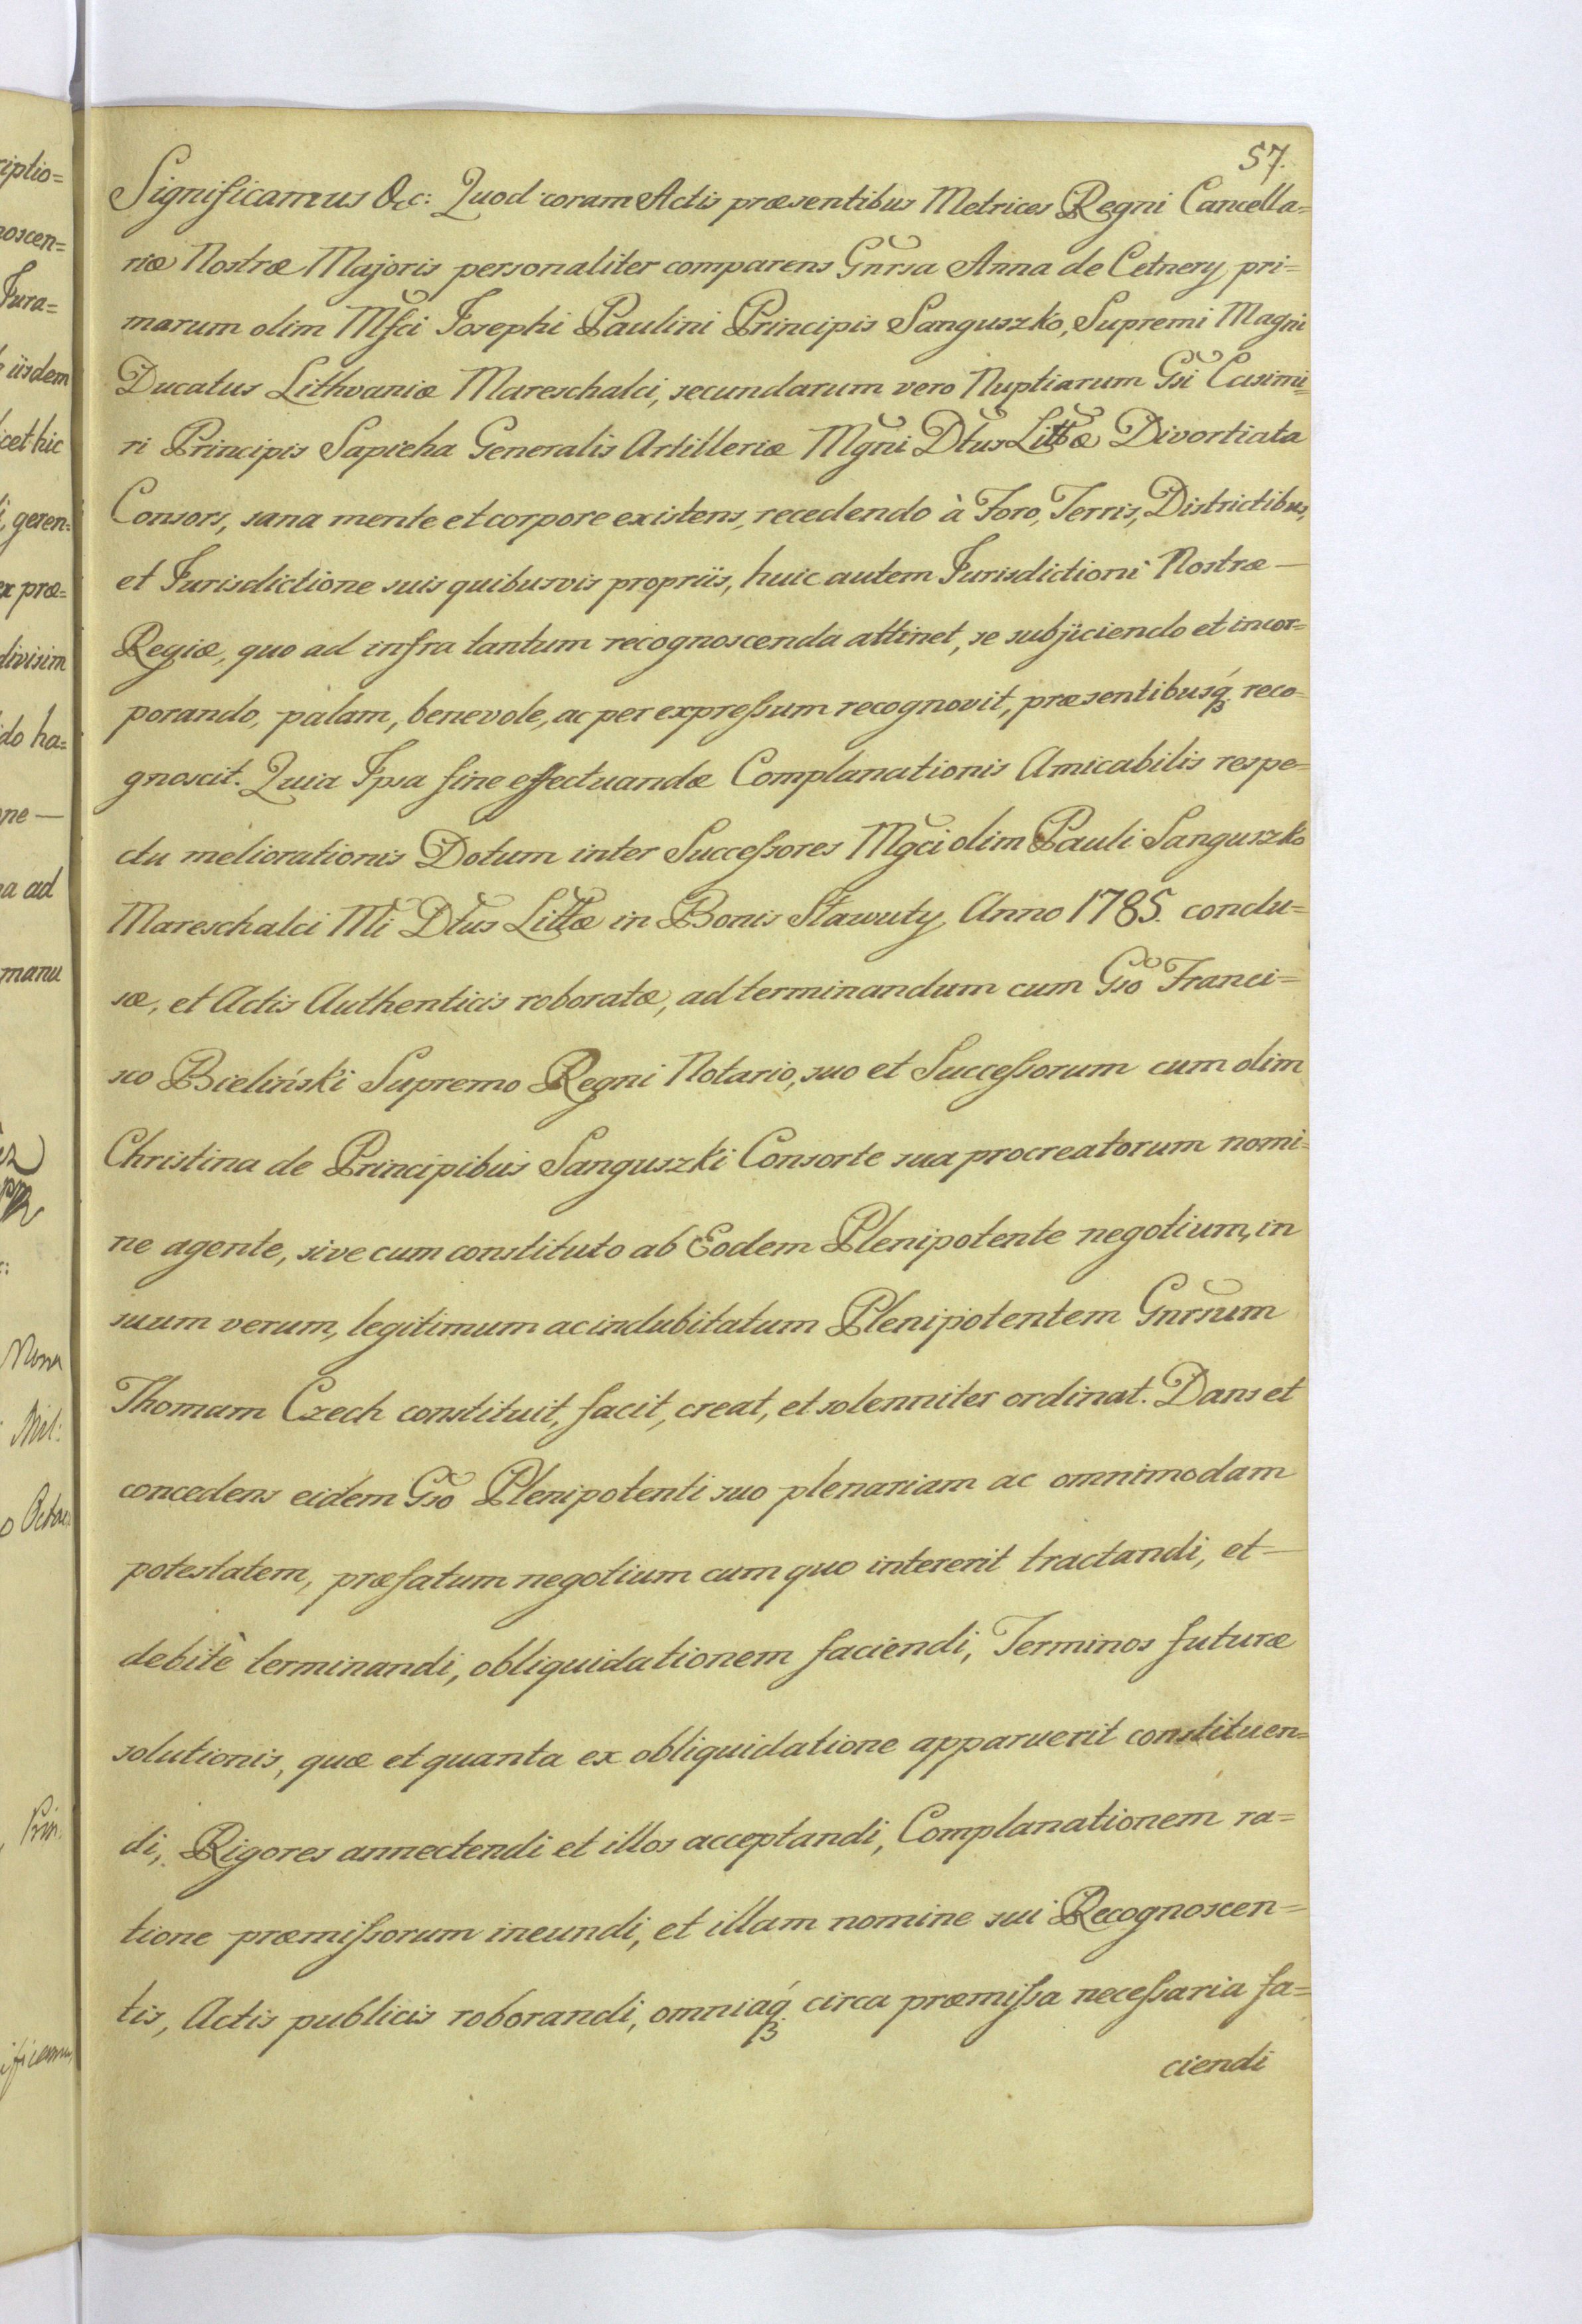 57.
Significamus &c: Quod coram Actis præsentibus Metrices Regni Cancella=
riæ Nostræ Majoris personaliter comparens Gnrsa Anna de Cetnery pri=
marum olim Mfci Josephi Paulini Principis Sanguszko, Supremi Magni
Ducatus Lithvaniæ Mareschalci, secundarum vero Nuptiarum Gsi Casimi=
ri Principis Sapieha Generalis Artilleriæ Mgni Dtus Littæ Divortiata
Consors, sana mente et corpore existens, recedendo à Foro, Terris, Districtibus,
et Jurisdictione suis quibusvis propriis, huic autem Jurisdictioni Nostræ —
Regiæ, quo ad infra tantum recognoscenda attinet, se subjiciendo et incor=
porando, palam, benevole, ac per expressum recognovit, præsentibusq́ reco=
gnoscit. Quia Ipsa fine effectuandæ Complanationis Amicabilis respe=
ctu meliorationis Dotum inter Successores Mgci olim Pauli Sanguszko
Mareschalci Mi Dtus Littæ in Bonis Sławuty Anno 1785. conclu=
sæ, et Actis Authenticis roboratæ, ad terminandum cum Gso Franci=
sco Bieliński Supremo Regni Notario, suo et Successorum cum olim
Christina de Principibus Sanguszki Consorte sua procreatorum nomi=
ne agente, sive cum constituto ab Eodem Plenipotente negotium, in
suum verum, legitimum ac indubitatum Plenipotentem Gnrsum
Thomam Czech constituit, facit, creat, et solenniter ordinat. Dans et
concedens eidem Gso Plenipotenti suo plenariam ac omnimodam
potestatem, præfatum negotium cum quo intererit tractandi, et —
debitè terminandi, obliquidationem faciendi, Terminos futuræ
solutionis, quæ et quanta ex obliquidatione apparuerit constituen=
di, Rigores annectendi et illos acceptandi, Complanationem ra=
tione præmissorum ineundi, et illam nomine sui Recognoscen=
tis, Actis publicis roborandi, omniaq́ circa præmissa necessaria fa=
ciendi